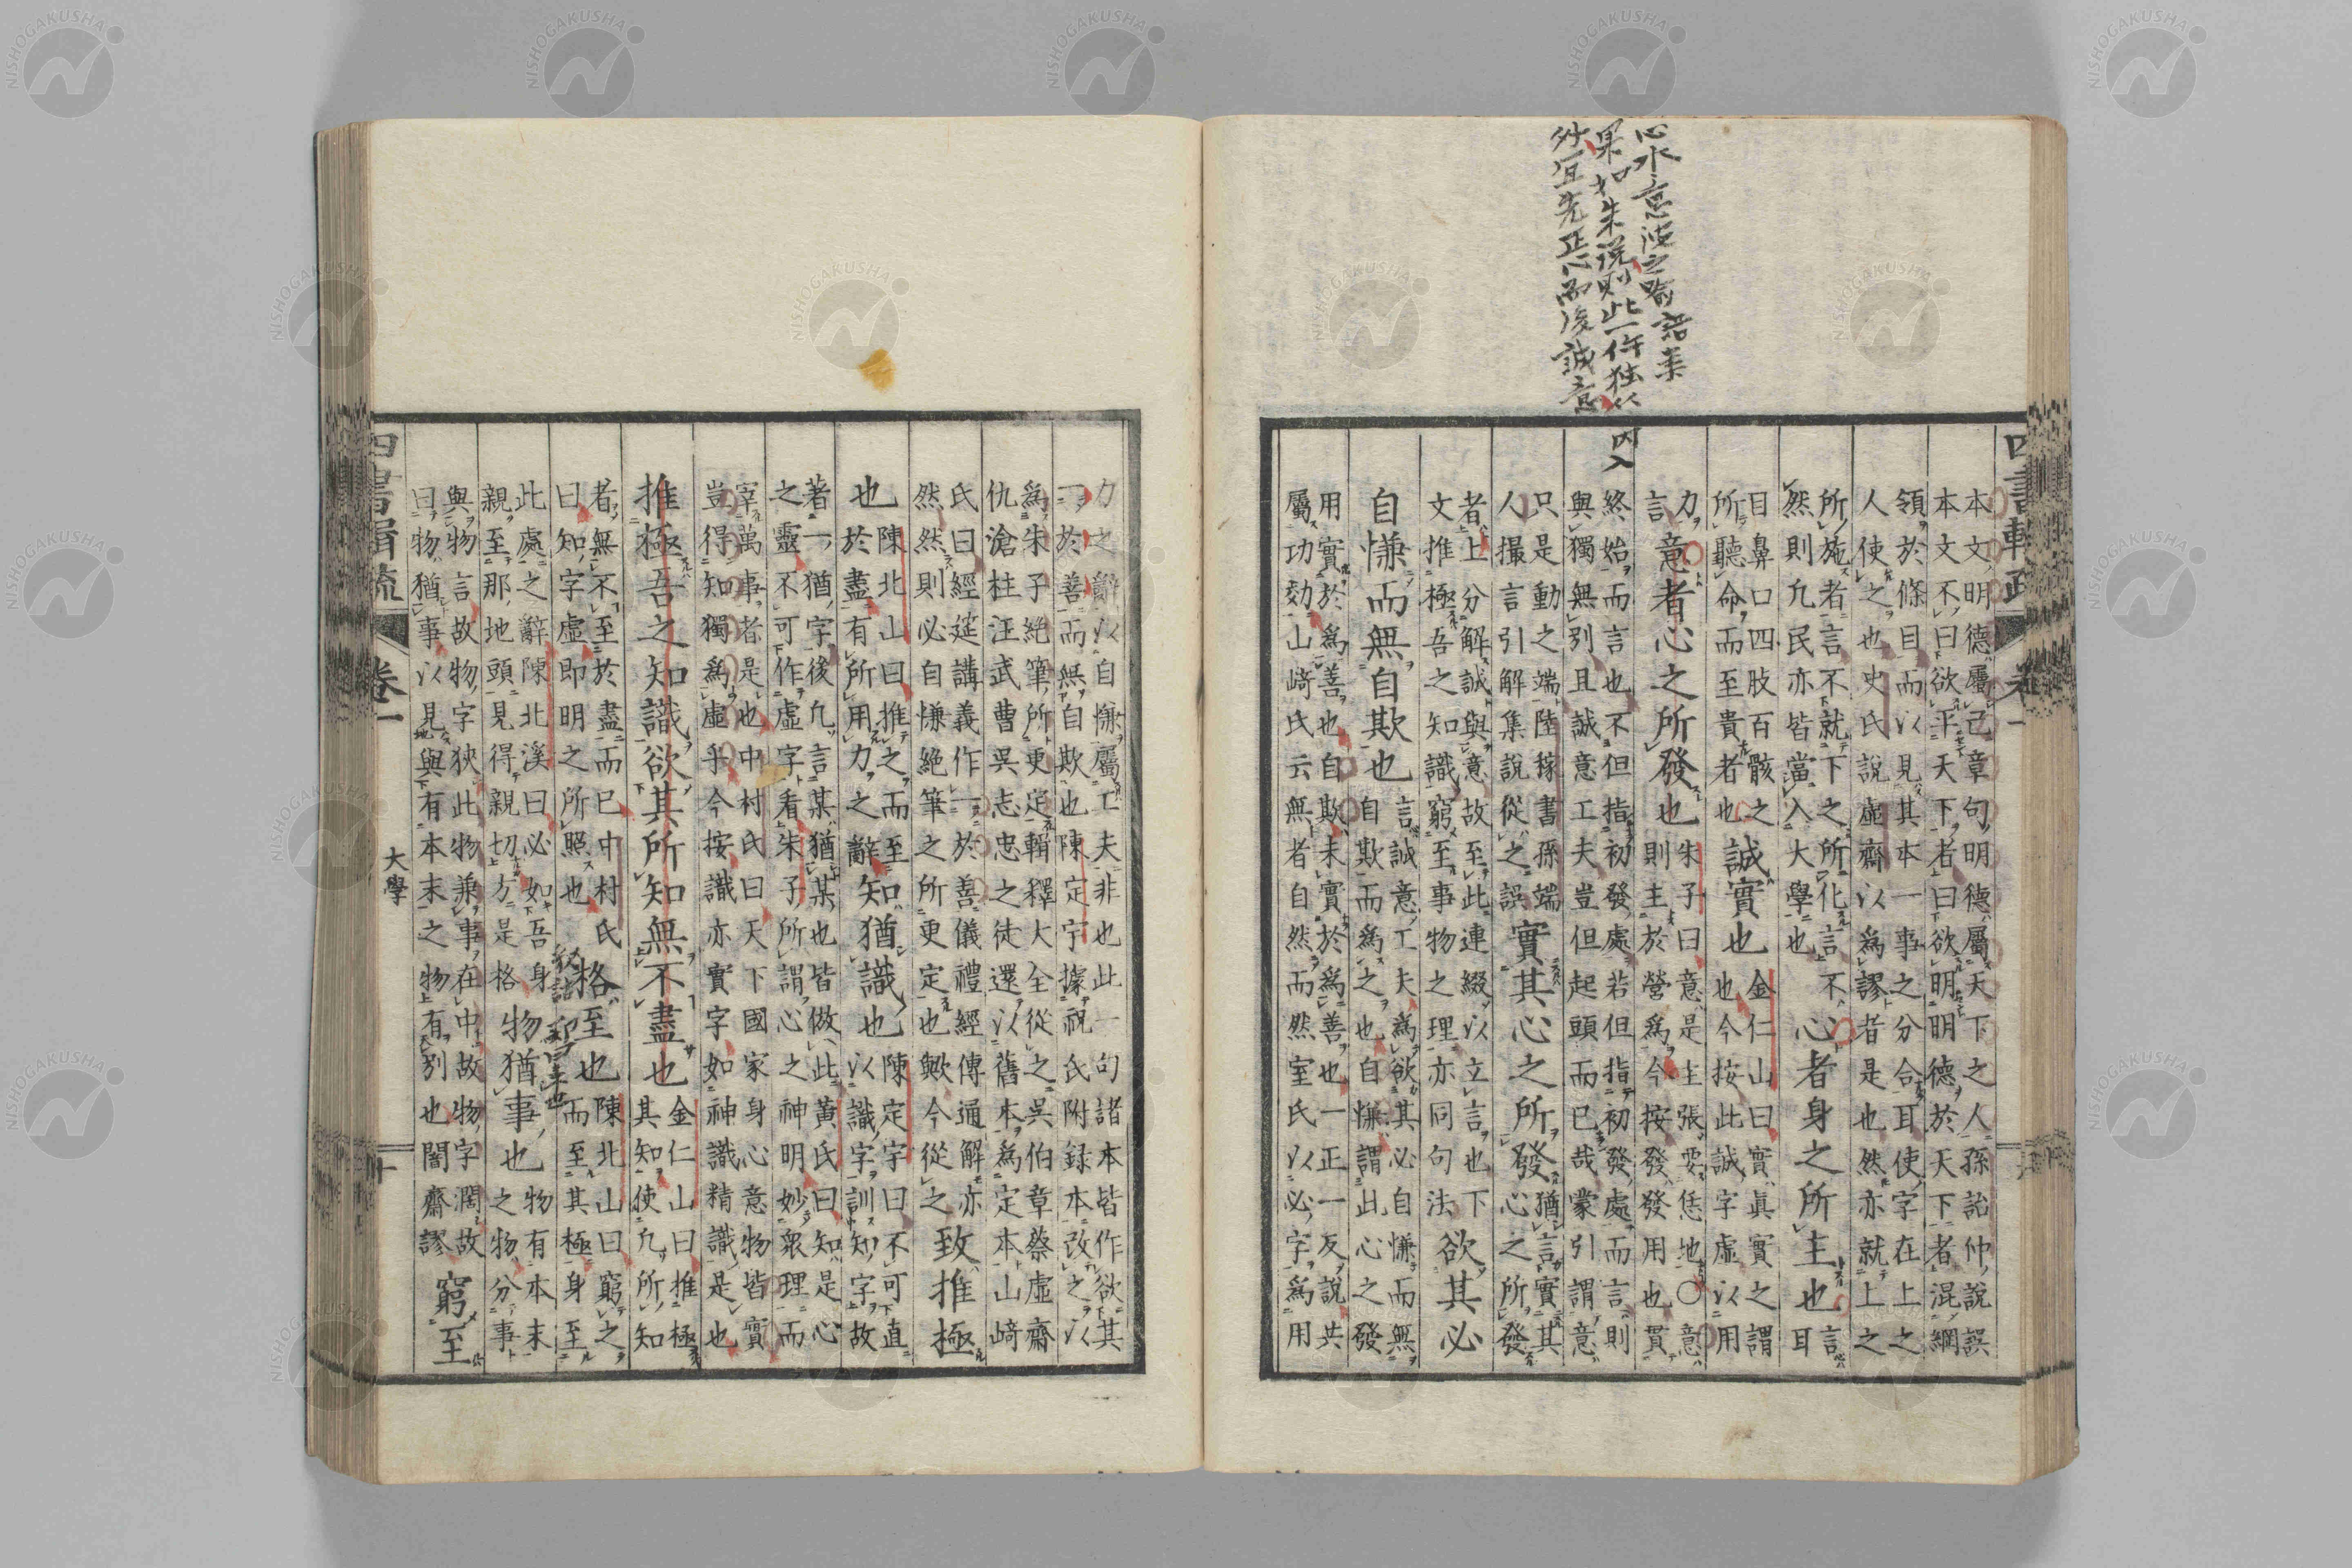 心水意波之喩語葉
果如朱説則此一件独以
外宜先正心而後誠意
内入
本文明德屬己章句明德屬天下之人孫詒仲説誤
本文不曰欲平天下者曰欲明明德於天下者混綱
領於條目而以見其本一事之分合耳使字在上之
人使之也史氏説虛齋以爲謬者是也然亦就上之
所施者言不就下之所化言不
然則凡民亦皆當入大學也
心者身之所主也
言
耳
目鼻口四肢百骸之
所聽命而至貴者也
誠實也
金仁山曰實眞實之謂
也今按此誠字虛以用
力
言
意者心之所發也
朱子曰意是主張要恁地○意
則主於營爲今按發發用也貫
終始而言也不但指初發處若但指初發處而言則
與獨無別且誠意工夫豈但起頭而已哉蒙引謂意
只是動之端陸稼書孫端
人撮言引解集説從之誤
實其心之所發
猶言實其
心之所發
者上分解誠與意故至此連綴以立言也下
文推極吾之知識窮至事物之理亦同句法
欲其必
自慊而無自欺也
言誠意工夫爲欲其必自慊而無
自欺而爲之也自慊謂此心之發
用實於爲善也自欺未實於爲善也一正一反説共
屬功効山﨑氏云無者自然而然室氏以必字爲用
力之辭以自慊屬工夫非也此一句諸本皆作欲其
一於善而無自欺也陳定宇據祝氏附録本改之以
爲朱子絶筆所更定輯釋大全從之吳伯章蔡虛齋
仇滄柱汪武曹吳志忠之徒還以舊本爲定本山﨑
氏曰經筵講義作一於善儀禮經傳通解亦
然然則必自慊絶筆之所更定也歟今從之
致推極
也
陳北山曰推之而至
於盡有所用力之辭
知猶識也
陳定宇曰不可直
以識字訓知字故
著一猶字後凡言某猶某也皆倣此黄氏曰知是心
之靈不可作虛字看朱子所謂心之神明妙衆理而
宰萬事者是也中村氏曰天下國家身心意物皆實
豈得知獨爲虛乎今按識亦實字如神識精識是也
推極吾之知識欲其所知無不盡也
金仁山曰推極
其知使凡所知
者無不至於盡而已中村氏
曰知字虛即明之所照也
格至也
陳北山曰窮之
而至其極身至
此處之辭陳北溪曰必如吾身
親至那地頭見得親切方是格
物猶事也
物有本末
之物分事
與物言故物字狹此物兼事在中故物字濶故
曰物猶事以見與有本末之物有別也闇齋謬
窮至
四書輯疏
卷一
大學
十